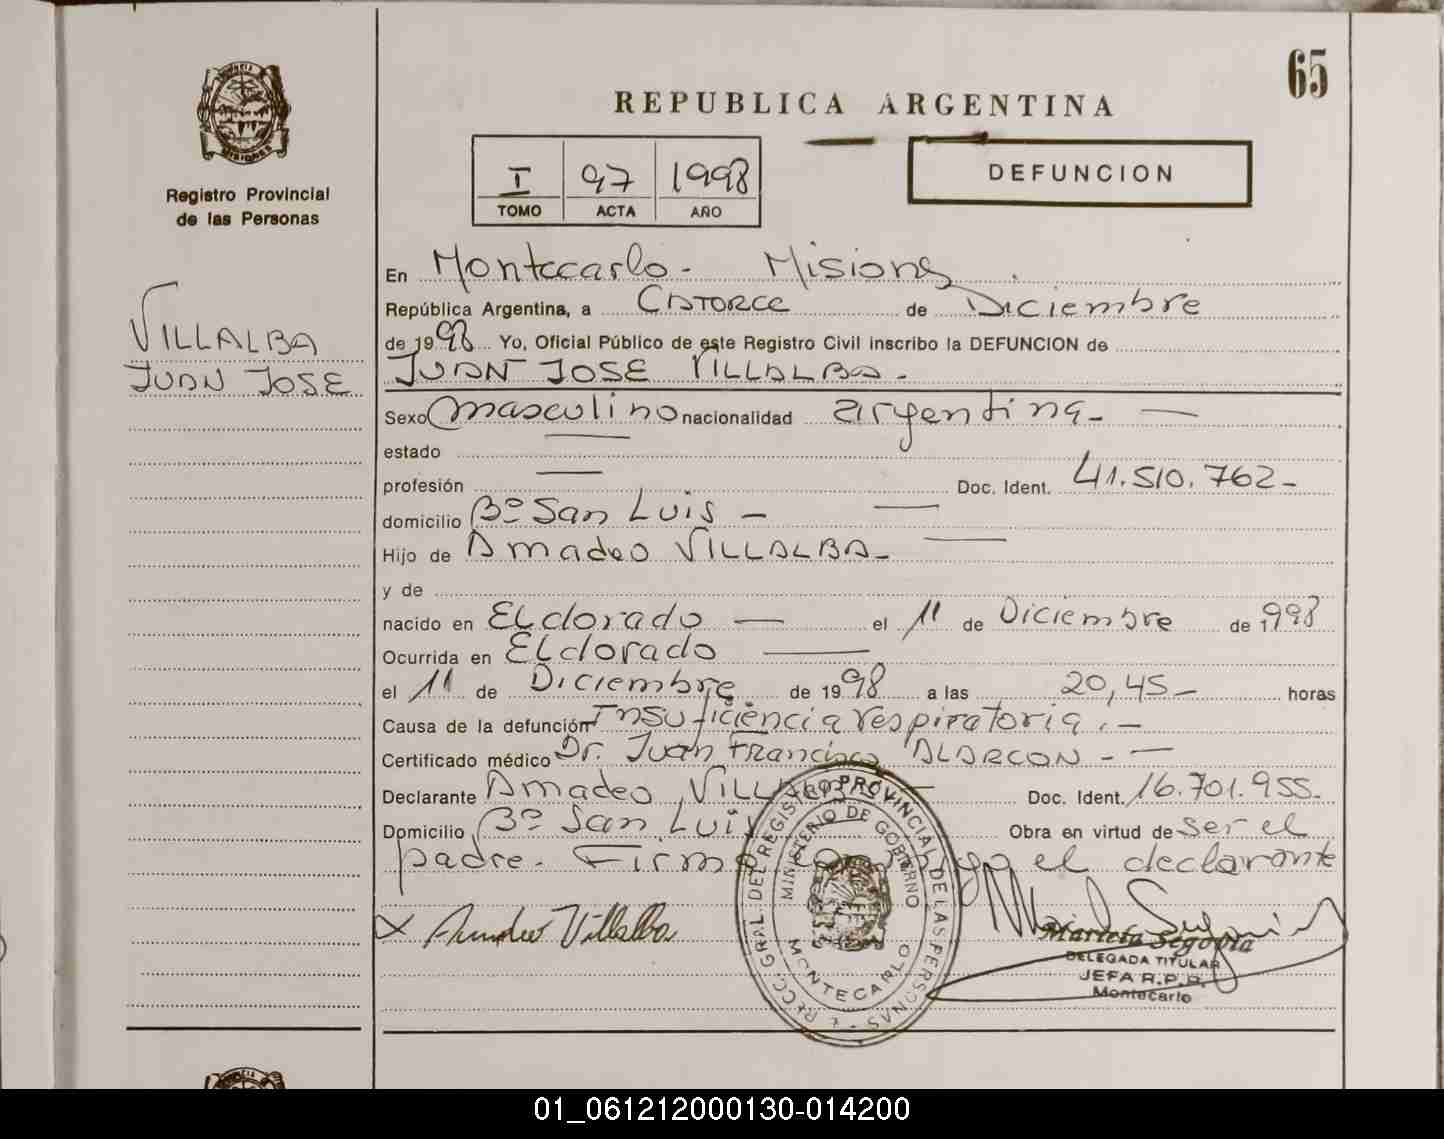 65
REPUBLICA ARGENTINA
PROVINCIA
MISIONES
Registro Provincial
de las Personas
I 97 1998
TOMO ACTA AÑO
DEFUNCION
VILLALBA
JUAN JOSE
En Montecarlo - Misiones
República Argentina, a CATORCE de Diciembre
de 1998 Yo, Oficial Público de este Registro Civil inscribo la DEFUNCION de
JUAN JOSE VILLALBA.
Sexo masculino nacionalidad argentina -
estado
profesión Doc. Ident. 41.510.762-
domicilio Bº San Luis -
Hijo de Amadeo VILLALBA-
y de
nacido en ELdorado el 11 de Diciembre de 1998
Ocurrida en ELdorado
el 11 de Diciembre de 1998 a las 20,45- horas
Causa de la defunción Insuficiencia respiratoria.-
Certificado médico Dr. Juan Francisco ALARCON -
Declarante Amadeo VILLALBA Doc. Ident. 16.701.955-
Domicilio Bº San Luis Obra en virtud de ser el
padre. Firma conmigo el declarante
X Amadeo Villalba
REGISTRO PROVINCIAL DE LAS PERSONAS
MINISTERIO DE GOBIERNO
MONTECARLO
Marieta Segovia
DELEGADA TITULAR
JEFA R.P.P.
Montecarlo
01_061212000130-014200